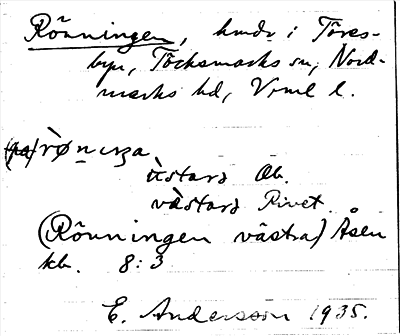 Rönningen, hmdr i Töres-
byn, Töcksmarks sn, Nord-
marks hd, Vrml l.
(pa) rø̀nıŋa
ùstard Ob.
västard Rivet
(Rönningen västra) Åsen
kb. 8:3
E. Andersson 1935.